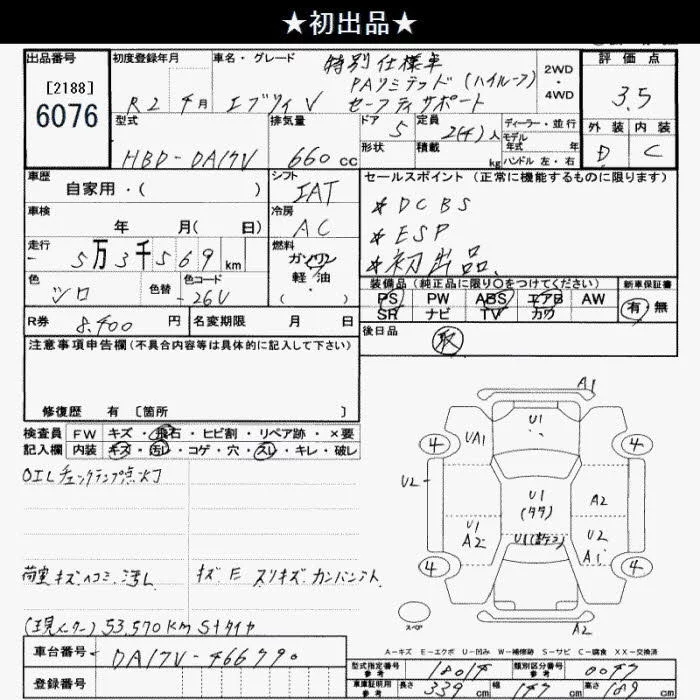 ★初出品★
出品番号
[2188]
6076
初度登録年月
R2 年 4月
車名・グレード
特別仕様車
エブリイV PAリミテッド(ハイルーフ)
セーフティサポート
2WD
・
4WD
評価点
3.5
外装 内装
D C
型式
HBD-DA17V
排気量
660cc
ドア 5
形状
定員 2(4)人
積載 kg
ディーラー・並行
モデル年式 年
ハンドル 左・右
車歴
自家用・( )
シフト
IAT
セールスポイント(正常に機能するものに限ります)
*DCBS
*ESP
*初出品
車検
年 月( 日)
冷房
AC
走行
5万3千569km
燃料
ガソリン
軽・油
( )
色
シロ
色替
色コード
-26U
装備品(純正品に限り○をつけてください)
PS PW ABS エアB AW
SR ナビ TV カワ
新車保証書
有・無
R券 8,400円
名変期限 月 日
後日品
取
注意事項申告欄(不具合内容等は具体的に記入して下さい)
修復歴 有 [箇所 ]
検査員 FW キズ・飛石・ヒビ割・リペア跡・×要
記入欄 内装 キズ・汚レ・コゲ・穴・スレ・キレ・破レ
OILチェックランプ点灯
荷室キズ ヘコミ 汚レ
キズ E スリキズ
(現メーター) 53,570km Sタイヤ
A1
U1
4
UA1
4
U2
U1
(タタ)
A2
U1
A2
U2
A1
4
4
スペア
A2
A-キズ E-エクボ U-凹み W-補修跡 S-サビ C-腐食 XX-交換済
車台番号 DA17V-466790
登録番号
型式指定番号 参考 18014
類別区分番号 参考 0047
車庫証明用 参考 長さ 339cm 幅 147cm 高さ 189cm